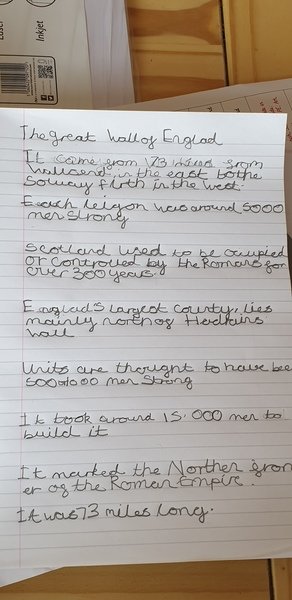 Inkjet
The great Wall of Englad
It came from 73 from
Wallsend, in the east to the
Solway firth in the west.
Each leigon was around 5000
men strong
Scotland used to be occupied
or controlled by the Romans for
over 300 years.
England's largest county, lies
mainly north of Hadrians
Wall
Units are thought to have bee
500-1000 men strong
It took around 15,000 men to
build it
It marked the Norther fron
er of the Roman Empire.
It was 73 miles long.